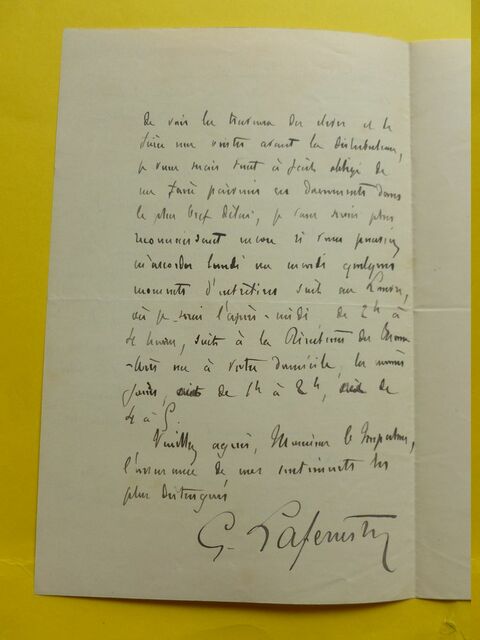 de voir les travaux des élèves et de
faire une visite avant la distribution,
je vous serais tout à fait obligé de
me faire parvenir ces documents dans
le plus bref délai, je vous serais plus
reconnaissant encore si vous pouviez
m'accorder lundi ou mardi quelques
moments d'entretien soit au Louvre,
où je serai l'après-midi, de 2h à
4 heures, soit à la Direction des
à votre domicile, les mêmes
jours, de 1h à 2h, de
4 à 5.
Veuillez agréer, Monsieur l'Inspecteur,
l'assurance de mes sentiments les
plus distingués
G. Lafenestre